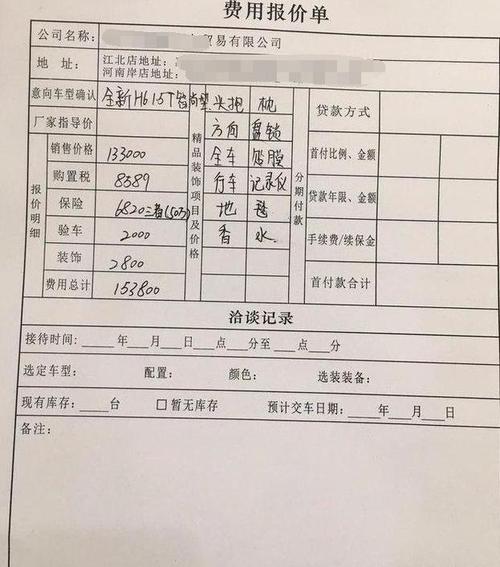 费用报价单
公司名称: 贸易有限公司
地 址: 江北店地址:
河南岸店地址:
意向车型确认 全新H6 1.5T 智尚型
厂家指导价
报价明细
销售价格 133000
购置税 8589
保险 6820 三者(50万)
验车 2000
装饰 2800
费用总计 153800
精品装饰项目及价格
头把 枕
方向 盘锁
全车 贴膜
行车 记录仪
地 毯
香 水
分期付款
贷款方式
首付比例、金额
贷款年限、金额
手续费/续保金
首付款合计
洽谈记录
接待时间:____年___月___日___点___分至___点___分
选定车型: 配置: 颜色: 选装装备:
现有库存:____台 □暂无库存 预计交车日期:____年___月___日
备注: